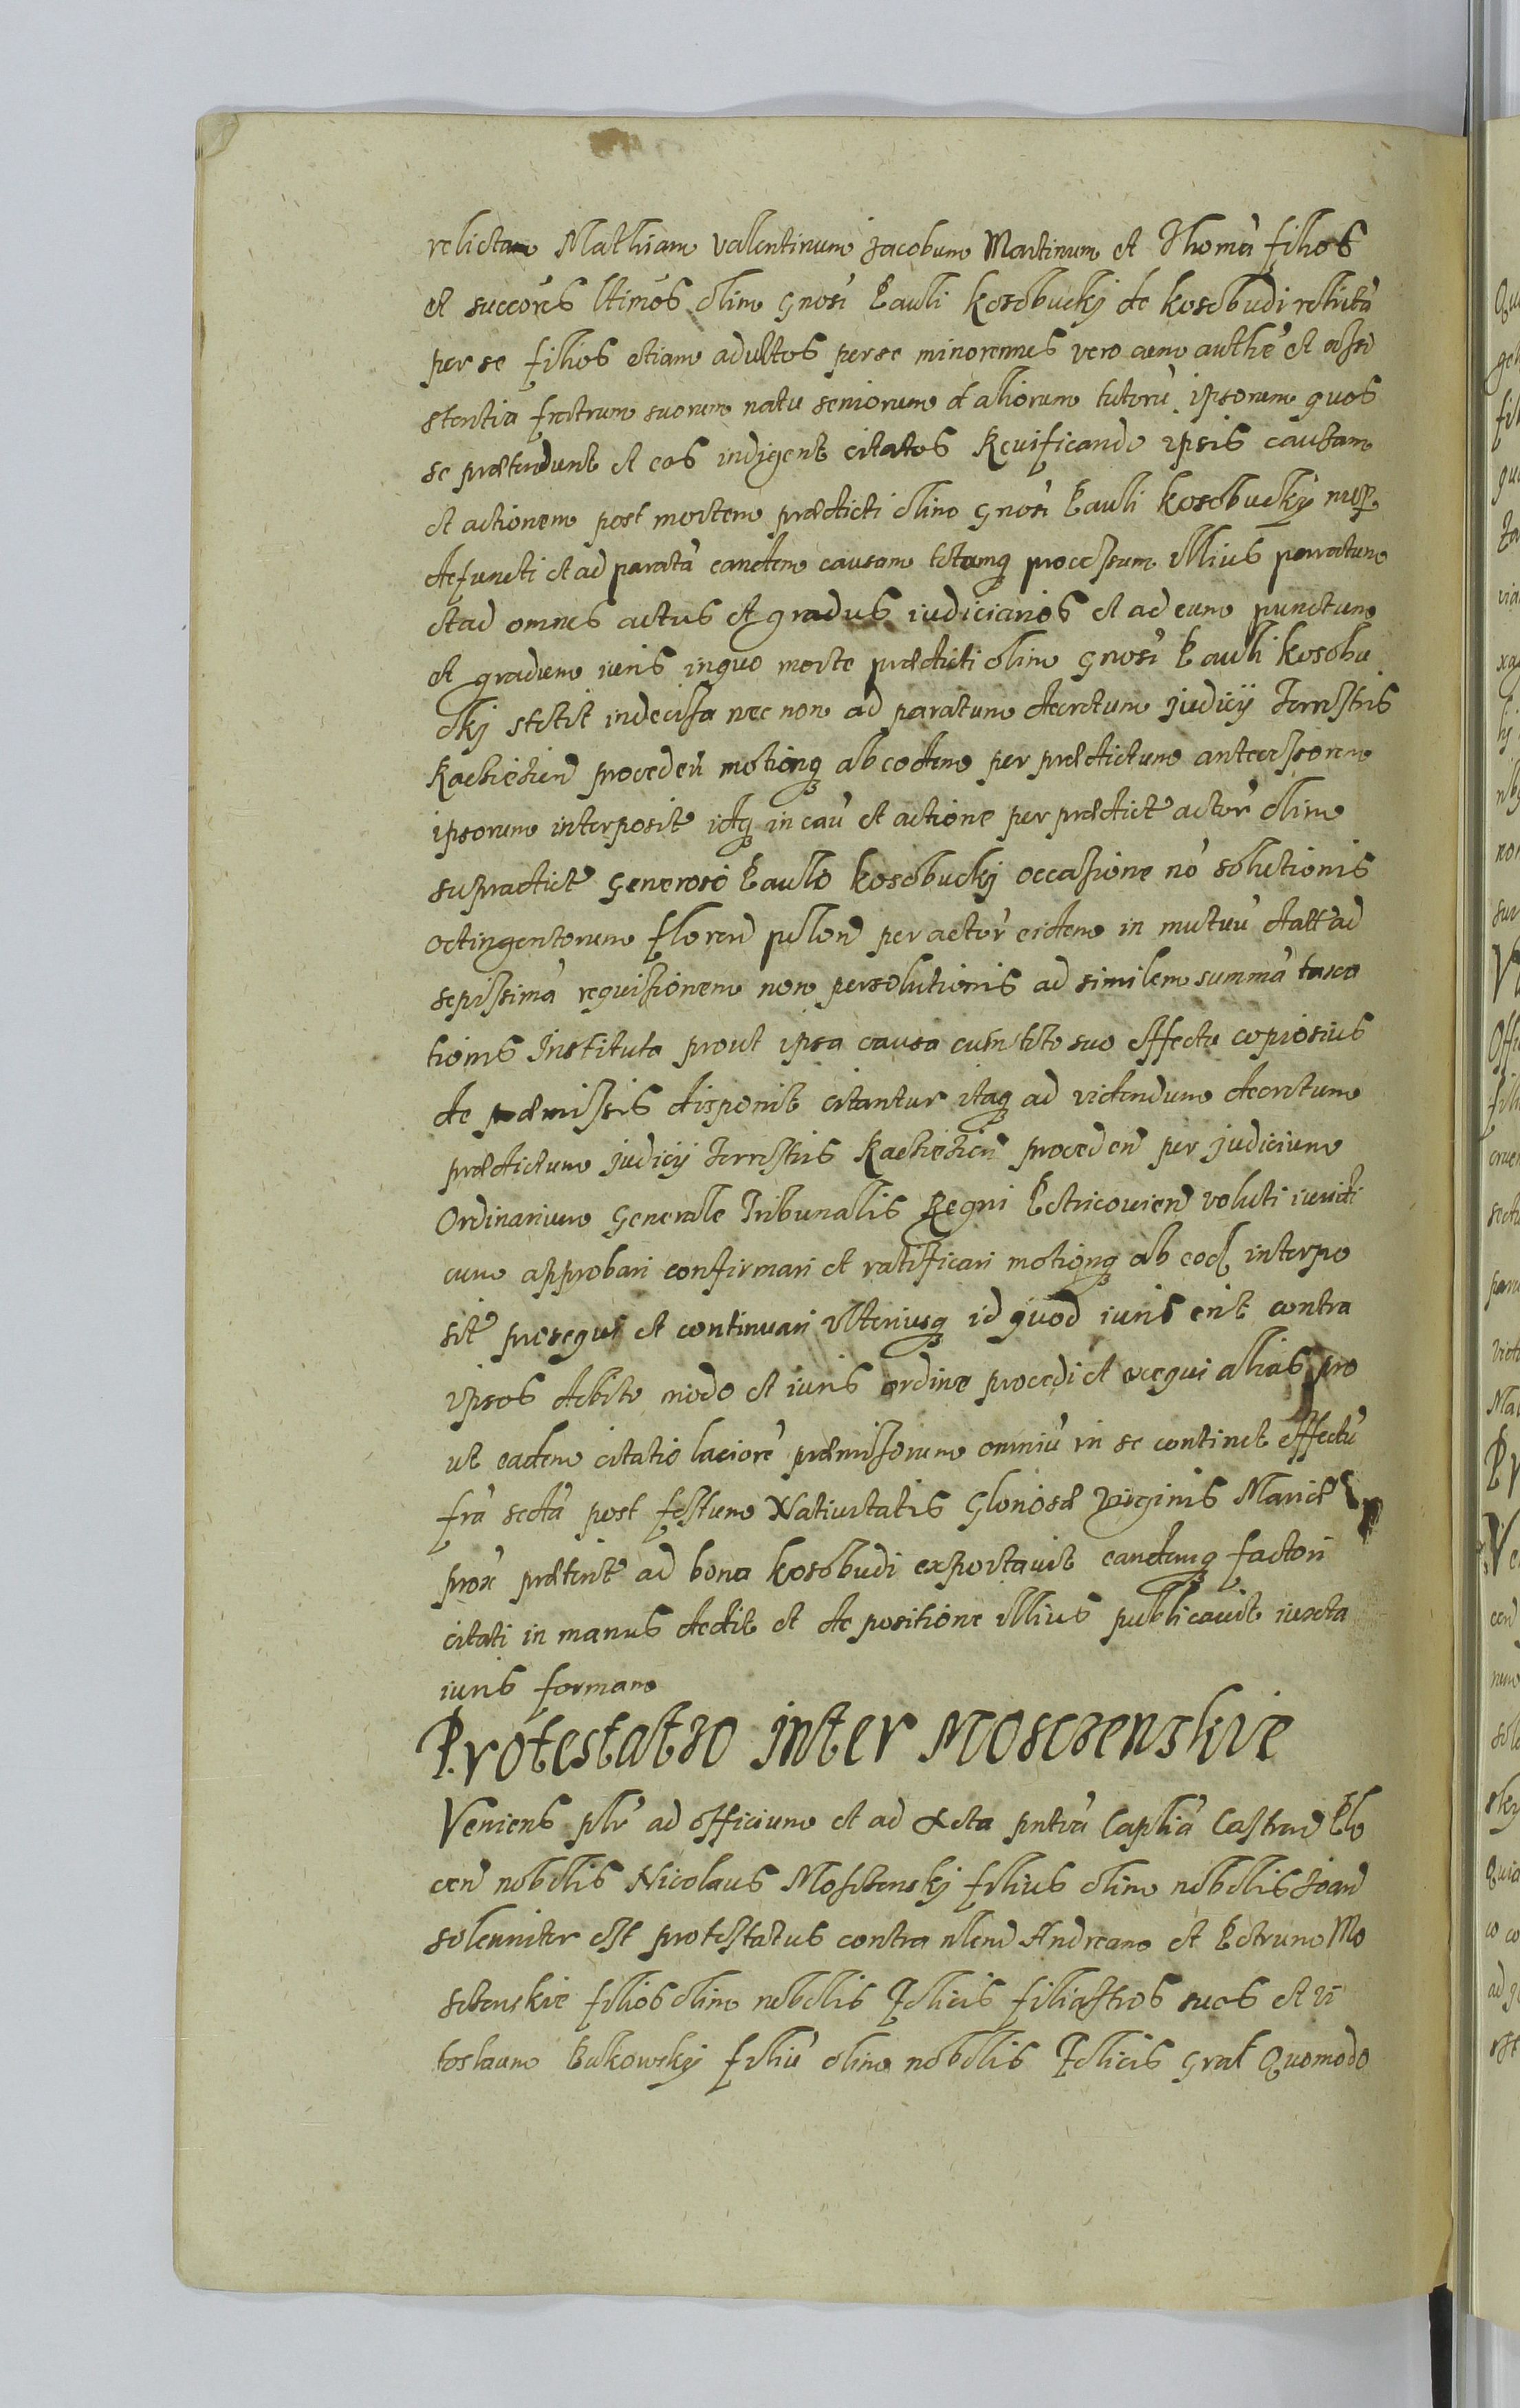 relictam Mathiam Valentinum Jacobum Martinum et Thomā filios
et succōres ltimos olim Gnōsi Pauli Kosobuckij de Kosobudi relictā
per se filios etiam adultos per se minorennes vero cum authē et assi
stentia fratrum suorum natu seniorum et aliorum tutorū ipsorum quos
se prætendunt et eos indigent citatos Revificando ipsis causam
et actionem post mortem prædicti olim Gnōsi Pauli Kosobuckij nup
defuncti et ad paratā eandem causam totumq processum illius paratum
et ad omnes actus et gradus iudiciarios et ad eum punctum
et gradum iuris in quo morte prædicti olim Gnōsi Pauli Kosobu
ckij stetit indecisa nec non ad paratum decretum judicij Terrestris
Raciążien proceden motionq ab eodem per prædictum antecessorem
ipsorum interposit idq in caū et actione per prædict actor olim
supradict Generoso Paulo Kosobuckij occasione nō solutionis
octingentorum floren polon per actor eidem in mutuū datt ad
sepissimā requisitionem non persolutionis ad similem summā taxa
tionis Instituta prout ipsa causa cum toto suo effectu copiosius
de præmissis disponit citantur itaq ad videndum decretum
prædictum judicij Terrestris Raciążien proceden per judicium
Ordinarium Generale Tribunalis Regni Petricovien veluti iuridi
cum approbari confirmari et ratificari motionq ab eod interpo
sit prosequi et continuari ulteriusq id quod iuris erit contra
ipsos debito modo et iuris ordine procedi et exequi alias pro
ut eadem citatio laciorē præmissorum omniū in se continet effectū
frā sectā post festum Nativitatis Gloriosæ Virginis Mariæ
prox præterit ad bona Kosobudi exportavit eandemq factori
citati in manus dedit et de positione illius publicavit iuxta
iuris formam
Protestatio inter Mosczenskie
Veniens plr ad officium et ad Acta pntia Caplia Castren Plo
cen nobilis Nicolaus Mosczenskij filius olim nobilis Joan
solenniter est protestatus contra nlem Andream et Petrum Mo
sczenskie filios olim nobilis Felicis filiastros suos et vi
toslaum Bukowskij filiū olim nobilis Felicis Grat Quomodo